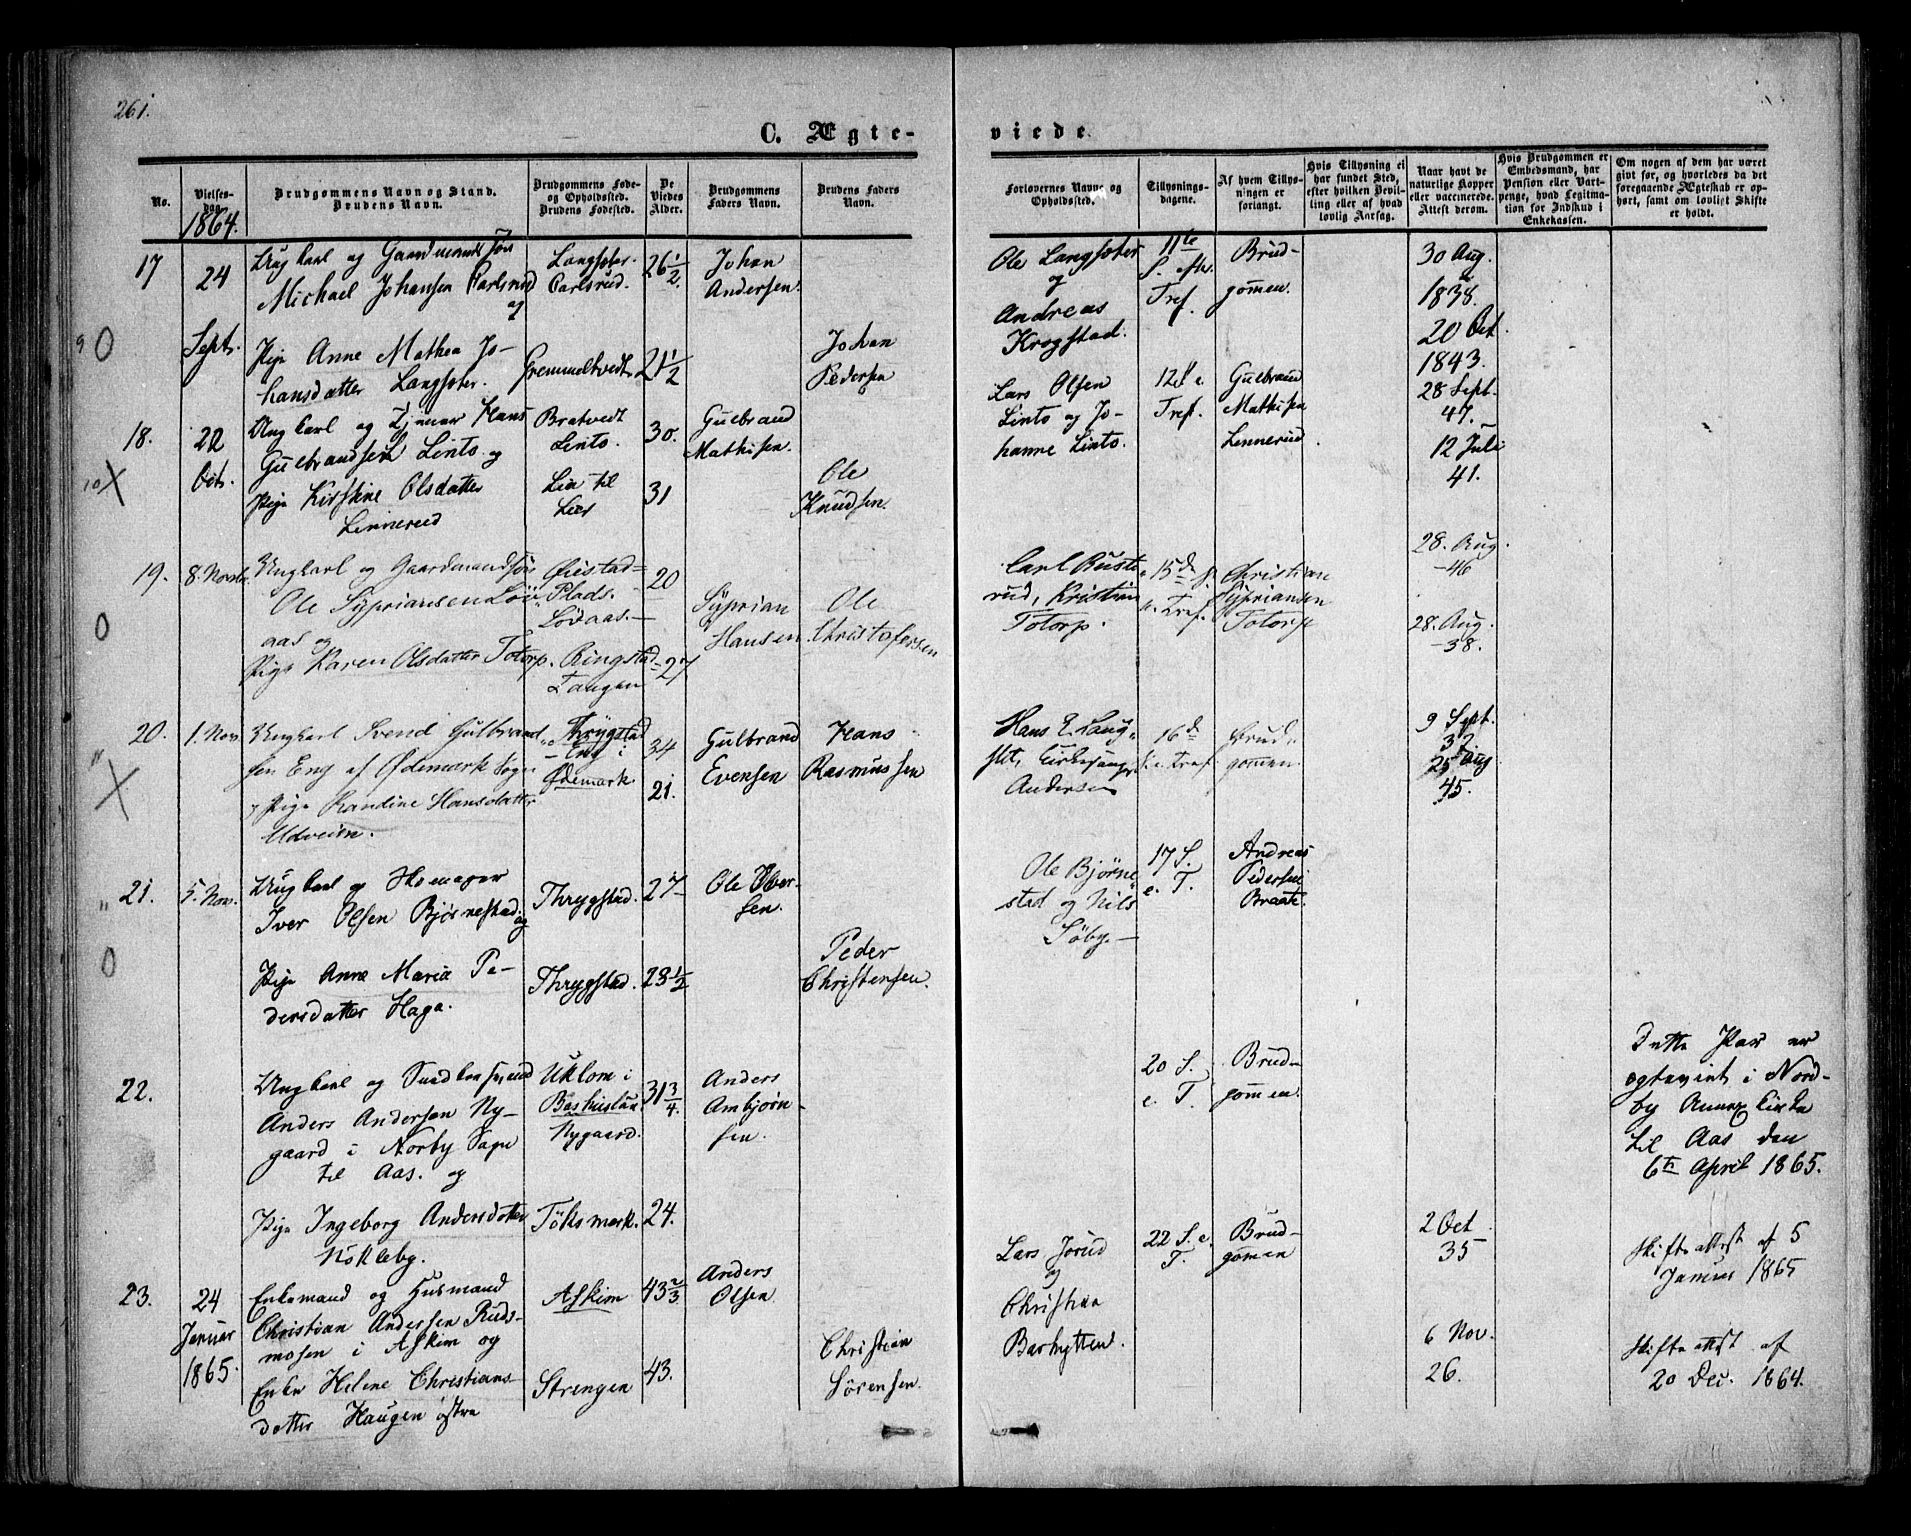 261.
C. Ægte- viede.
No.
Vielses-
dag.
1864.
Brudgommens Navn og Stand.
Brudens Navn.
Brudgommens Føde-
og Opholdssted.
Brudens Fødested.
De
Viedes
Alder.
Brudgommens
Faders Navn.
Brudens Faders
Navn.
Forlovernes Navne og
Opholdssted.
Tillysnings-
dagene.
Af hvem Tillys-
ningen er
forlangt.
Hvis Tillysning ei
har fundet Sted,
efter hvilken Bevil-
ling eller af hvad
lovlig Aarsag.
Naar havt de
naturlige Kopper
eller vaccinerede.
Attest derom.
Hvis Brudgommen er
Embedsmand, har
Pension eller Vart-
penge, hvad Legitma-
tion for Indskud i
Enkekassen.
Om nogen af dem har været
givt før, og hvorledes da det
foregaaende Ægteskab er op-
hørt, samt om lovligt Skifte
er holdt.
17
24
Sept.
9 0
Ungkarl og Gaardmandsøn
Michael Johansen Carlsrud
og
Pige Anne Mathea Jo-
hansdatter Langsæter.
Langsæter.
Carlsrud.
Gremmeltvedt
26 1/2.
21 1/2
Johan
Andersen
Johan
Pedersen
Ole Langsæter
og
Andreas
Krogstad.
11te
S. efter
Tref.
Brud-
gommen.
30 Aug.
1838.
20 Oct.
1843.
18.
22
Oct.
10 X
Ungkarl og Hans
Gulbrandsen Linto og
Pige Kirstine Olsdatter
Linnerud
Bratvedt
Linto.
Lia til
30.
31
Gulbrand
Mathisen.
Ole
Knudsen.
Lars Olsen
Linto og Jo-
hanne Linto.
12 S. e.
Tref.
Gulbrand
Mathisen
Linnerud
28 Sept.
47.
12 Juli
41.
19.
8. Novbr.
0
Ungkarl og Gaardmandsøn
Ole Syprianesen Løv-
aas og
Pige Karen Olsdatter Totorp.
Øiestad-
Plads.
Løvaas.
Ringstad
Tangen
20
27
Syprian
Hansen
Ole
Christofersen
Carl Rusto-
rud, Kristian
Totorp.
15d S.
e. Tref.
Christian
Sypriansen
Totorp
28. Aug.
-46
28. Aug.
-38.
20.
1. Nov.
" X
Ungkarl Svend Gulbrand-
sen Eng af Ødemark Sogn
og Pige Randine Hansdatter
Udveien.
Thrygstad
Eng i
Ødemark.
34
21.
Gulbrand
Evensen
Hans
Rasmussen
Hans E. Laug-
Kirkesanger
Andersen
16d
S. e. Tref.
Brud-
gommen.
9 Sept.
37
25 Aug
45.
" 21.
5. Nov.
0
Ungkarl og Skomager
Iver Olsen Bjørnestad og
Pige Anne Maria Pe-
dersdatter Haga.
Thrygstad.
Thrygstad.
27
28 1/2
Ole Iver-
sen.
Peder
Christensen.
Ole Bjørne-
stad og Nils
Søby.
17 S.
e. T.
Andreas
Pedersen
Braate.
22.
Ungkarl og
Anders Andersen Ny-
gaard i Norby Sogn
til Aas. og
Pige Ingeborg Andersdatter
Nökleby.
Uklom i
Nygaard.
Töksmark.
31 3/4.
24.
Anders
Ambjørn-
sen.
20 S.
e. T.
Brud-
gommen.
Dette Par er
ægteviet i Nord-
by Annexkirke
til Aas den
6te April 1865.
23.
24
Januar
1865.
Enkemand og Husmand
Christian Andersen Ruds-
mosen i Askim og
Enke Helene Christians-
datter Haugen østre
Askim
Strengen
43 2/3
43.
Anders
Olsen.
Christian
Sørensen.
Lars Jorud
og
Christian
Barhytten.
22 S. e.
T.
Brud-
gommen
2 Oct.
35
6 Nov.
26.
Skifteattest af 5
Januar 1865
Skifteattest af
20 Dec. 1864.